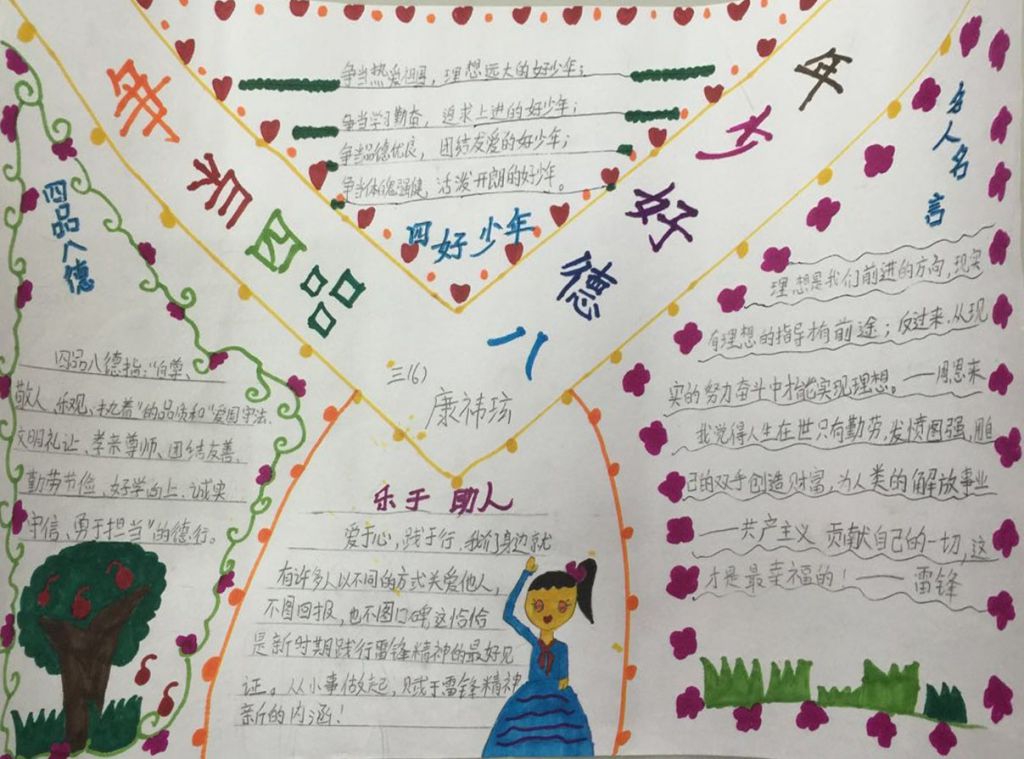 争当四品八德好少年
争当热爱祖国，理想远大的好少年；
争当学习勤奋，追求上进的好少年；
争当品德优良，团结友爱的好少年；
争当体魄强健，活泼开朗的好少年。
四好少年
三(6)
康祎玹
四品八德
四品八德指：“自尊、
敬人、乐观、执着”的品质和“爱国守法、
文明礼让、孝亲尊师、团结友善、
勤劳节俭、好学向上、诚实
守信、勇于担当”的德行。
乐于助人
爱于心，践于行，我们身边就
有许多人以不同的方式关爱他人，
不图回报，也不图口碑这恰恰
是新时期践行雷锋精神的最好见
证。从小事做起，赋于雷锋精神
新的内涵！
名人名言
理想是我们前进的方向，现实
有理想的指导才有前途；反过来，从现
实的努力奋斗中才能实现理想。——周恩来
我觉得人生在世只有勤劳，发愤图强，用自
己的双手创造财富，为人类的解放事业
——共产主义 贡献自己的一切，这
才是最幸福的！——雷锋